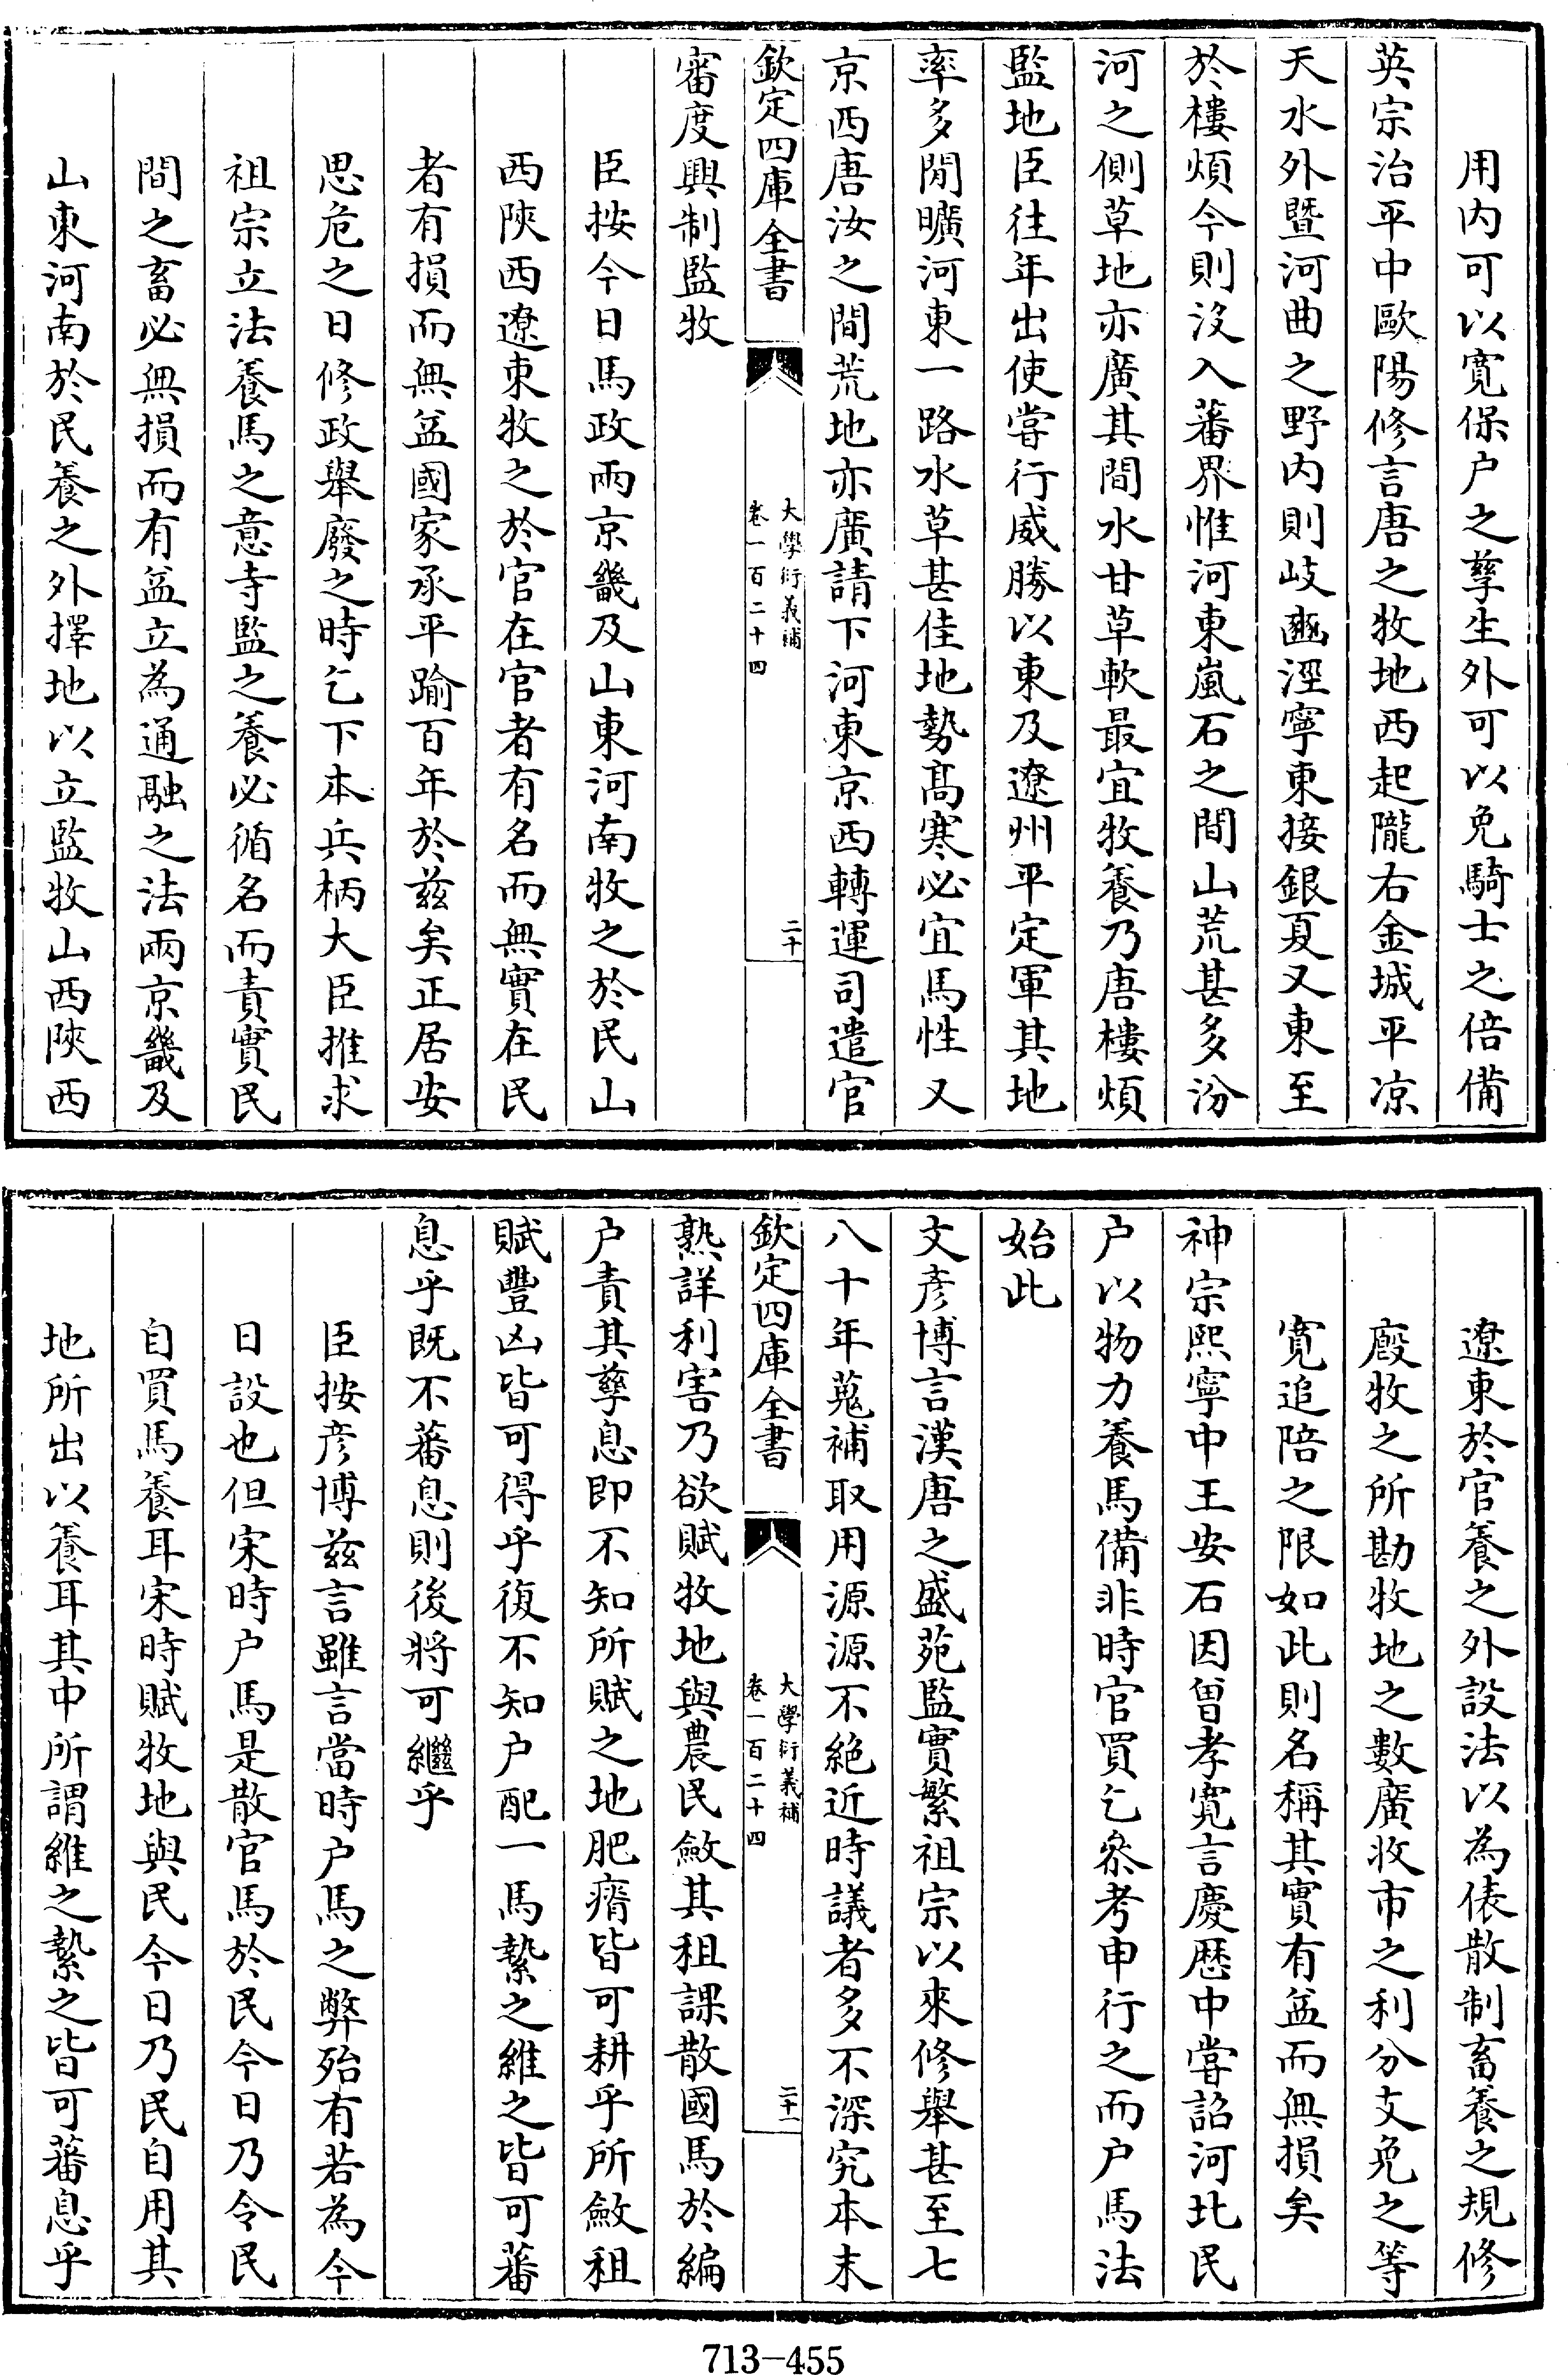 用内可以寛保户之孳生外可以免騎士之倍備
英宗治平中歐陽修言唐之牧地西起隴右金城平凉
天水外暨河曲之野内則岐豳涇寧東接銀夏又東至
於樓煩今則没入蕃界惟河東嵐石之間山荒甚多汾
河之側草地亦廣其間水甘草軟最宜牧養乃唐樓煩
監地臣往年出使嘗行威勝以東及遼州平定軍其地
率多閒曠河東一路水草甚佳地勢髙寒必宜馬性又
京西唐汝之間荒地亦廣請下河東京西轉運司遣官
欽定四庫全書
大學衍義補
卷一百二十四
二十
審度興制監牧
臣按今日馬政兩京畿及山東河南牧之於民山
西陜西遼東牧之於官在官者有名而無實在民
者有損而無益國家承平踰百年於兹矣正居安
思危之日修政舉廢之時乞下本兵柄大臣推求
祖宗立法養馬之意寺監之養必循名而責實民
間之畜必無損而有益立為通融之法兩京畿及
山東河南於民養之外擇地以立監牧山西陜西
遼東於官養之外設法以為俵散制畜養之規修
廐牧之所勘牧地之數廣收市之利分支免之等
寛追陪之限如此則名稱其實有益而無損矣
神宗熙寧中王安石因曾孝寛言慶歴中嘗詔河北民
户以物力養馬備非時官買乞叅考申行之而户馬法
始此
文彦博言漢唐之盛苑監實繁祖宗以來修舉甚至七
八十年蒐補取用源源不絶近時議者多不深究本末
欽定四庫全書
大學衍義補
卷一百二十四
二十一
熟詳利害乃欲賦牧地與農民斂其租課散國馬於編
户責其孳息即不知所賦之地肥瘠皆可耕乎所斂租
賦豐凶皆可得乎復不知户配一馬縶之維之皆可蕃
息乎既不蕃息則後將可繼乎
臣按彦博兹言雖言當時户馬之弊殆有若為今
日設也但宋時户馬是散官馬於民今日乃令民
自買馬養耳宋時賦牧地與民今日乃民自用其
地所出以養耳其中所謂維之縶之皆可蕃息乎
713-455